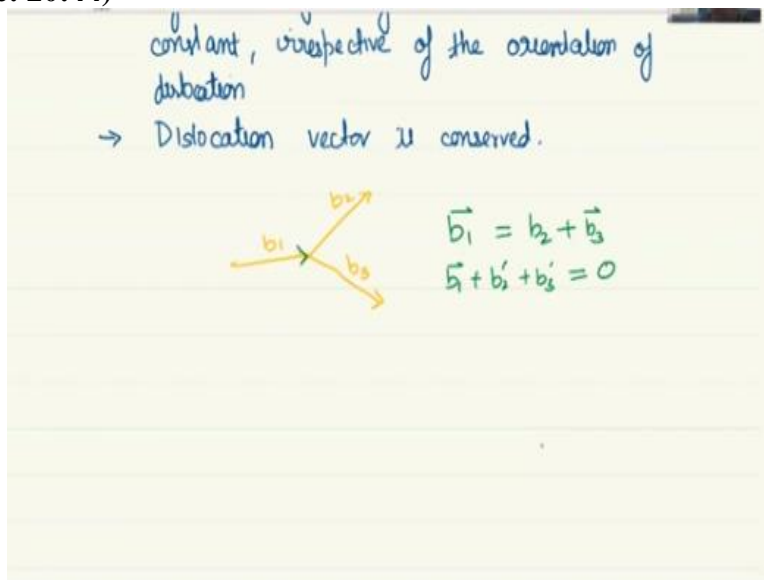 constant, irrespective of the orientation of
dislocation
→ Dislocation vector is conserved.
b2
b1
b3
b⃗1 = b2 + b⃗3
b⃗1 + b2' + b3' = 0